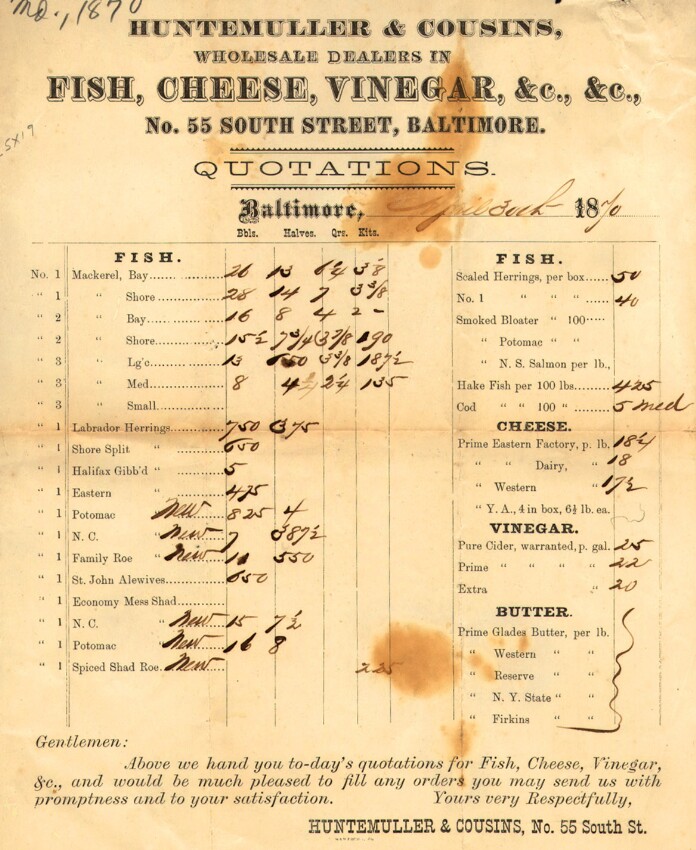 Md., 1870
HUNTEMULLER & COUSINS,
WHOLESALE DEALERS IN
FISH, CHEESE, VINEGAR, &c., &c.,
No. 55 SOUTH STREET, BALTIMORE.
5x19
QUOTATIONS.
Baltimore, 30th 1870
Bbls. Halves. Qrs. Kits.
FISH.
No. 1 Mackerel, Bay 26 13 6¾ 3⅜
" 1 " Shore 28 14 7 3 3/8
" 2 " Bay 16 8 4 2 -
" 2 " Shore 15½ 7 3/4 3 7/8 190
" 3 " Lg'e 13 650 3 3/8 187½
" 3 " Med. 8 4¼ 2¼ 135
" 3 " Small
" 1 Labrador Herrings 750 375
" 1 Shore Split " 650
" 1 Halifax Gibb'd " 5
" 1 Eastern " 475
" 1 Potomac " New 825 4
" 1 N. C. " New 7 387½
" 1 Family Roe " New 11 550
" 1 St. John Alewives 650
" 1 Economy Mess Shad
" 1 N. C. " New 15 7½
" 1 Potomac " New 16 8
" 1 Spiced Shad Roe New 225
FISH.
Scaled Herrings, per box 50
No. 1 " " " 40
Smoked Bloater " 100
" Potomac " "
" N. S. Salmon per lb.,
Hake Fish per 100 lbs. 425
Cod " " 100 " 5 med
CHEESE.
Prime Eastern Factory, p. lb. 18¼
" " Dairy, " 18
" Western " 17½
" Y. A., 4 in box, 6½ lb. ea.
VINEGAR.
Pure Cider, warranted, p. gal. 25
Prime " " " " 22
Extra " 20
BUTTER.
Prime Glades Butter, per lb.
" Western " "
" Reserve " "
" N. Y. State " "
" Firkins " "
Gentlemen:
Above we hand you to-day's quotations for Fish, Cheese, Vinegar,
&c., and would be much pleased to fill any orders you may send us with
promptness and to your satisfaction. Yours very Respectfully,
HUNTEMULLER & COUSINS, No. 55 South St.